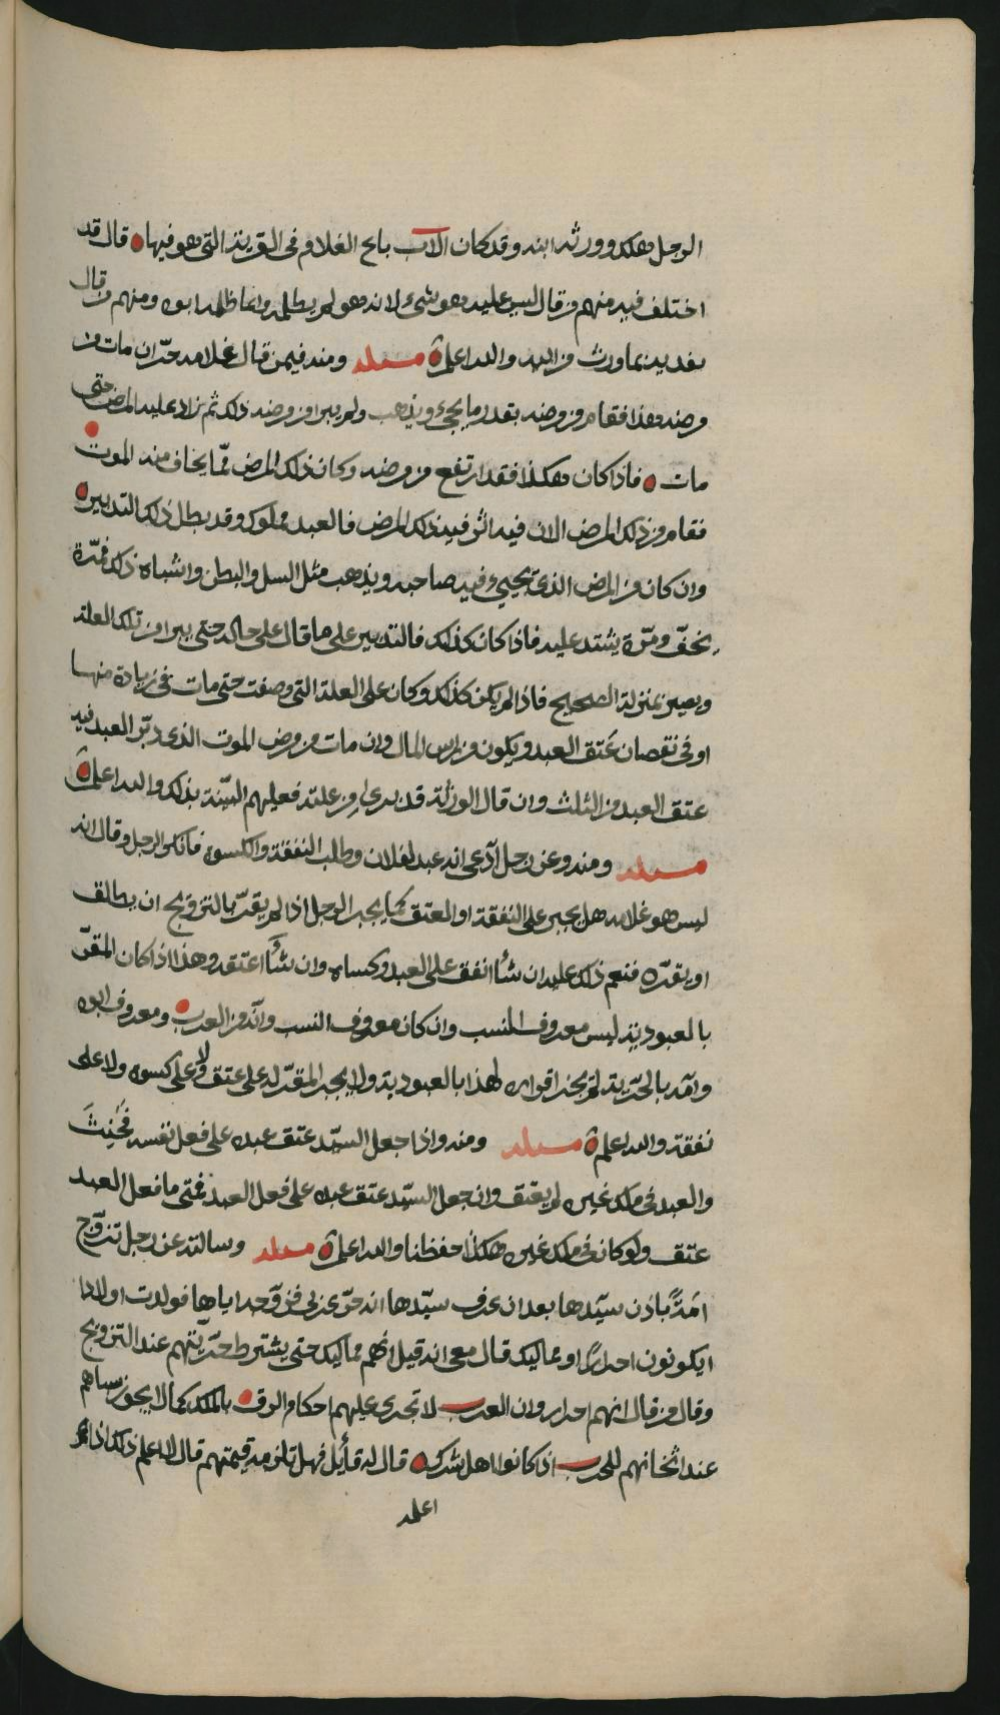 الرجل هلك وورثه ابنه وقد كان الاب بايع الغلام في القرية التي هو فيها ه قال قد
اختلف فيه منهم من قال ليس عليه هو شيء لانه هو لم يظلمه وانما ظلمه ابوه ومنهم من قال
يفديه بما ورث من ابيه والله اعلم ه مسئله ومنه فيمن قال غلامه حرّ ان مات من
مرضه هذا فقام من مرضه بقدر ما يجيء ويذهب ولم يبرا من مرضه ذلك ثم زاد عليه المرض حتى
مات ه فاذا كان هكذا فقد ارتفع من مرضه وكان ذلك المرض مما يخاف منه الموت
فقام من ذلك المرض الا ان فيه اثر فيه ذلك المرض فالعبد مملوك وقد بطل ذلك التدبير ه
وان كان من المرض الذي يجيء فيه صاحبه ويذهب مثل السل والبطن واشباه ذلك فمرّة
يخفّ ومرّة يشتد عليه فاذا كان كذلك فالتدبير على ما قال على حاله حتى يبرا من تلك العلة
ويصير بمنزلة الصحيح فاذا لم يكن كذلك وكان على العلة التي وصفت حتى مات في زيادة منها
او في نقصان عتق العبد ويكون من راس المال وان مات من مرض الموت الذي دبّر العبد فيه
عتق العبد من الثلث وان قال الورثة قد برئ من علته فعليهم البيّنة بذلك والله اعلم ه
مسئله ومنه وعن رجل ادّعى انه عبد لفلان وطلب النفقة والكسوه فانكر الرجل وقال انه
ليس هو غلامه هل يجبر على النفقة او العتق كما يجبر الرجل اذا لم يقرّ بالتزويج ان يطلق
او يقرّه فنعم ذلك عليه ان شأ انفق على العبد وكساه وان شأ اعتقه وهذا اذا كان المقرّ
بالعبودية ليس معروف النسب وان كان معروف النسب وانّه من العرب ومعروف ابوه
وامّه بالحرّية لم يجز اقراره لهذا بالعبودية ولا يجبر المقرّ له على عتق ولا على كسوه ولا على
نفقة والله اعلم ه مسئله ومنه واذا جعل السيّد عتق عبده على فعل نفسه فحَنِثَ
والعبد في ملك غيره لم يعتق وان جعل السيّد عتق عبده على فعل العبد فمتى ما فعل العبد
عتق ولو كان في ملك غيره هكذا حفظنا والله اعلم ه مسئله وسالته عن رجل تزوّج
امةً باذن سيّدها بعد ان عرف سيّدها انه حرّ عربي فزوّجه اياها فولدت اولادا
ايكونون احرارًا او مماليك قال معي انه قيل انهم مماليك حتى يشترط حرّيّتهم عند التزويج
وقال من قال انهم احرار وان العرب لا تجري عليهم احكام الرق بالملك كما لا يجوز سباهم
عند اثخانهم للحرب اذا كانوا اهل شرك ه قال له قأيل فهل تلزمه قيمتهم قال لا اعلم ذلك اذا
اعلمه